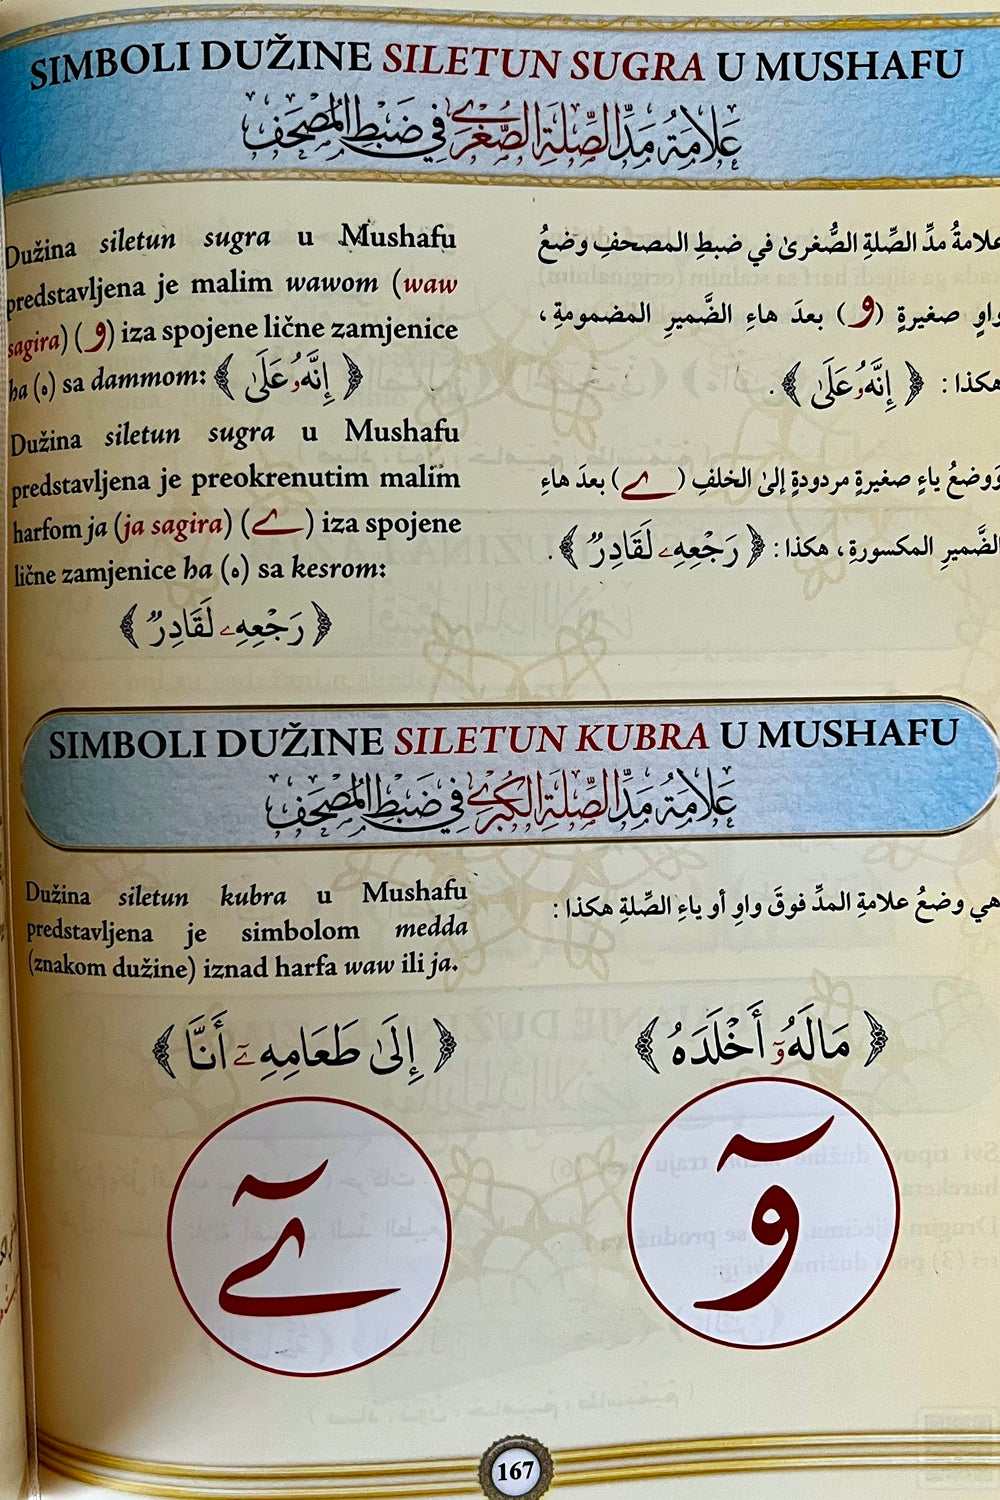 SIMBOLI DUŽINE SILETUN SUGRA U MUSHAFU
عَلَامَةُ مَدِّ الصِّلَةِ الصُّغْرَىٰ فِي ضَبْطِ الْمُصْحَفِ
Dužina siletun sugra u Mushafu
predstavljena je malim wawom (waw
sagira) (و) iza spojene lične zamjenice
ha (ه) sa dammom: ﴿ إِنَّهُۥ عَلَىٰ ﴾
Dužina siletun sugra u Mushafu
predstavljena je preokrenutim malim
harfom ja (ja sagira) (ے) iza spojene
lične zamjenice ha (ه) sa kesrom:
﴿ رَجْعِهِۦ لَقَادِرٌ ﴾
علامةُ مدِّ الصِّلةِ الصُّغرىٰ في ضبطِ المصحفِ وضعُ
واوٍ صغيرةٍ (و) بعدَ هاءِ الضَّميرِ المضمومةِ ،
هكذا : ﴿ إِنَّهُۥ عَلَىٰ ﴾ .
وَوضعُ ياءٍ صغيرةٍ مردودةٍ إلىٰ الخلفِ (ے) بعدَ هاءِ
الضَّميرِ المكسورةِ ، هكذا : ﴿ رَجْعِهِۦ لَقَادِرٌ ﴾ .
SIMBOLI DUŽINE SILETUN KUBRA U MUSHAFU
عَلَامَةُ مَدِّ الصِّلَةِ الْكُبْرَىٰ فِي ضَبْطِ الْمُصْحَفِ
Dužina siletun kubra u Mushafu
predstavljena je simbolom medda
(znakom dužine) iznad harfa waw ili ja.
هي وضعُ علامةِ المدِّ فوقَ واوِ أو ياءِ الصِّلةِ هكذا :
﴿ مَالَهُۥٓ أَخْلَدَهُ ﴾
﴿ إِلَىٰ طَعَامِهِۦٓ أَنَّا ﴾
وٓ
ےٓ
167